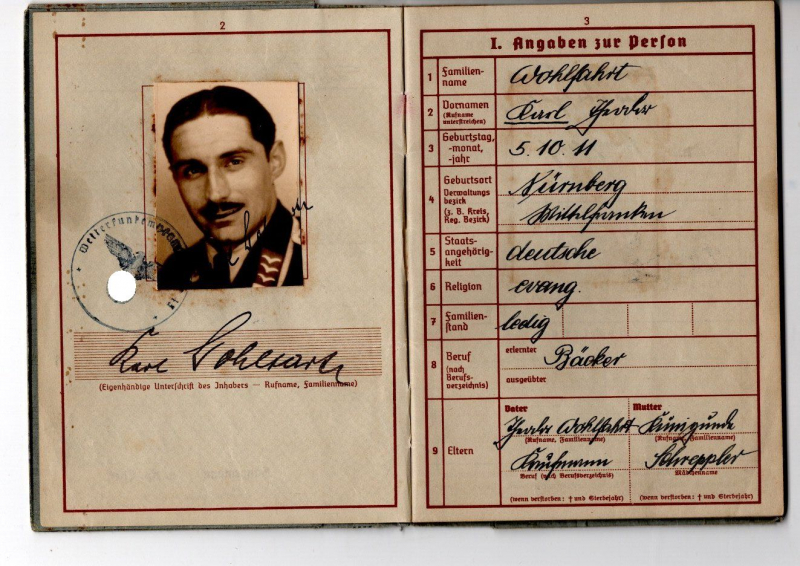 2
Wetterfunkempfan
Karl Wohlfahrt
(Eigenhändige Unterschrift des Inhabers — Rufname, Familienname)
3
I. Angaben zur Person
1 Familien-
name
Wohlfahrt
2 Vornamen
(Rufname
unterstreichen)
Karl Theodor
3 Geburtstag,
-monat,
-jahr
5.10.11
4 Geburtsort
Verwaltungs
bezirk
(z. B. Kreis,
Reg. Bezirk)
Nürnberg
Mittelfranken
5 Staats-
angehörig-
keit
deutsche
6 Religion
evang.
7 Familien-
stand
ledig
8 Beruf
(nach
Berufs-
verzeichnis)
erlernter
Bäcker
ausgeübter
9 Eltern
Vater
Theodor Wohlfahrt
(Rufname, Familienname)
Kaufmann
Beruf (nach Berufsverzeichnis)
(wenn verstorben: † und Sterbejahr)
Mutter
Kunigunde
(Rufname, Familienname)
Schreppler
Mädchenname
(wenn verstorben: † und Sterbejahr)